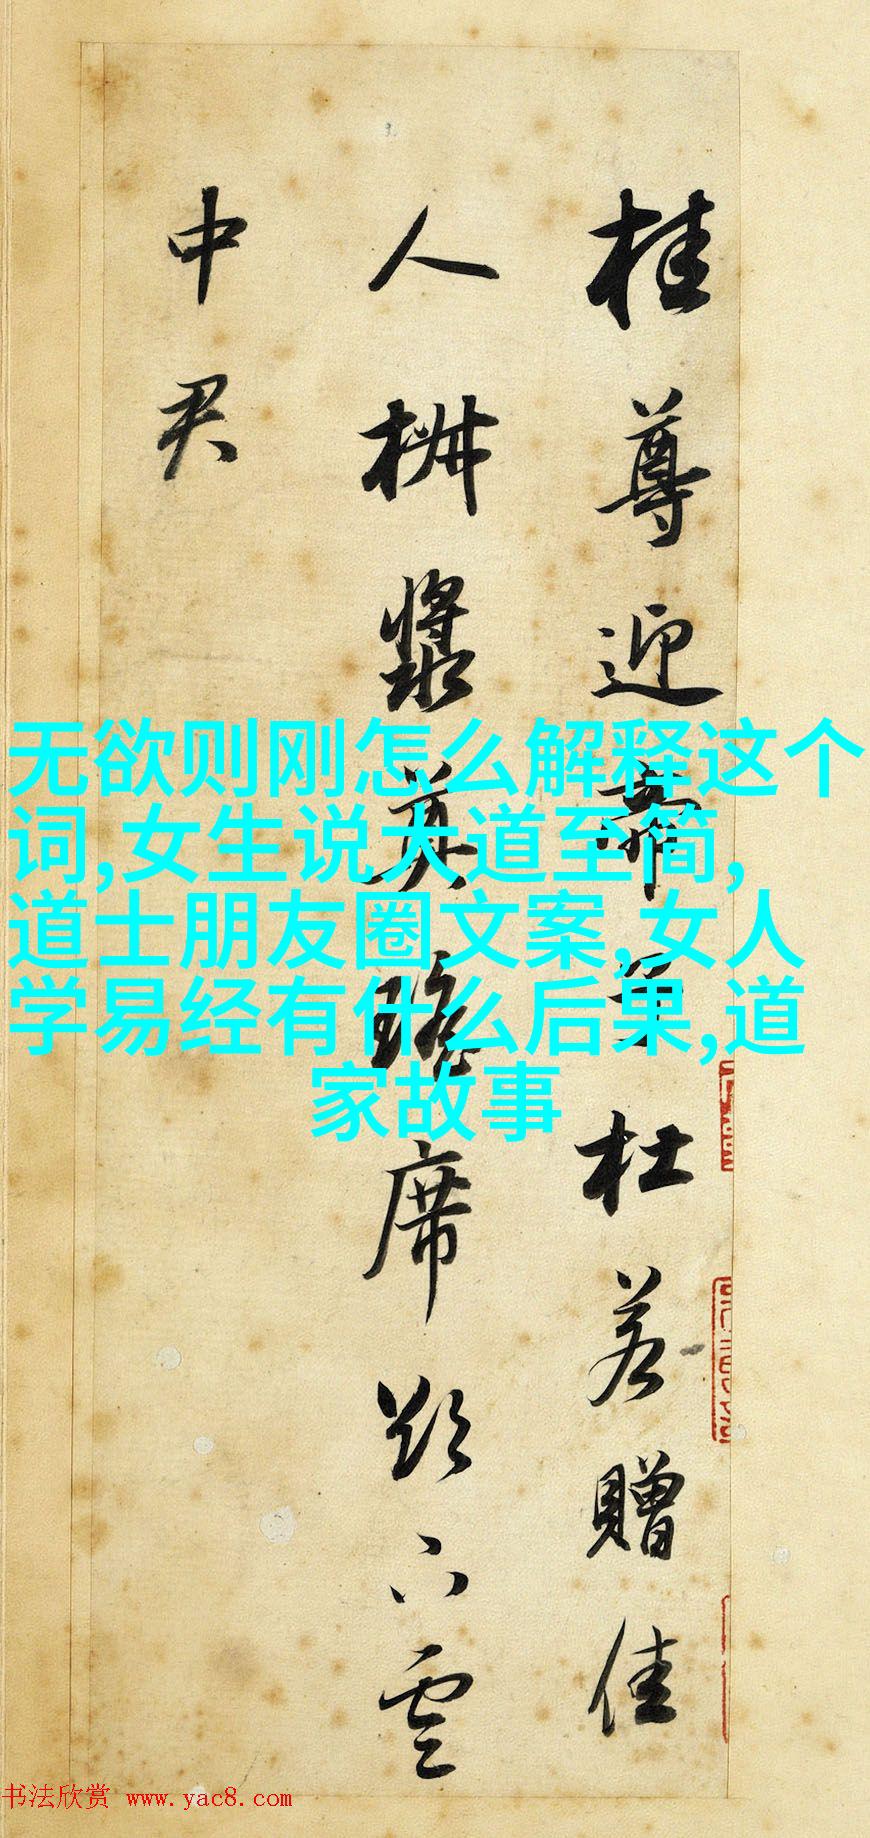 桂尊迎帝子杜若贈佳
人椒漿奠瑤席欲下雲
中君
无欲则刚怎么解释这个
词,女生说大道至简,
道士朋友圈文案,女人
学易经有什么后果,道
家故事
书法欣赏 www.yac8.com